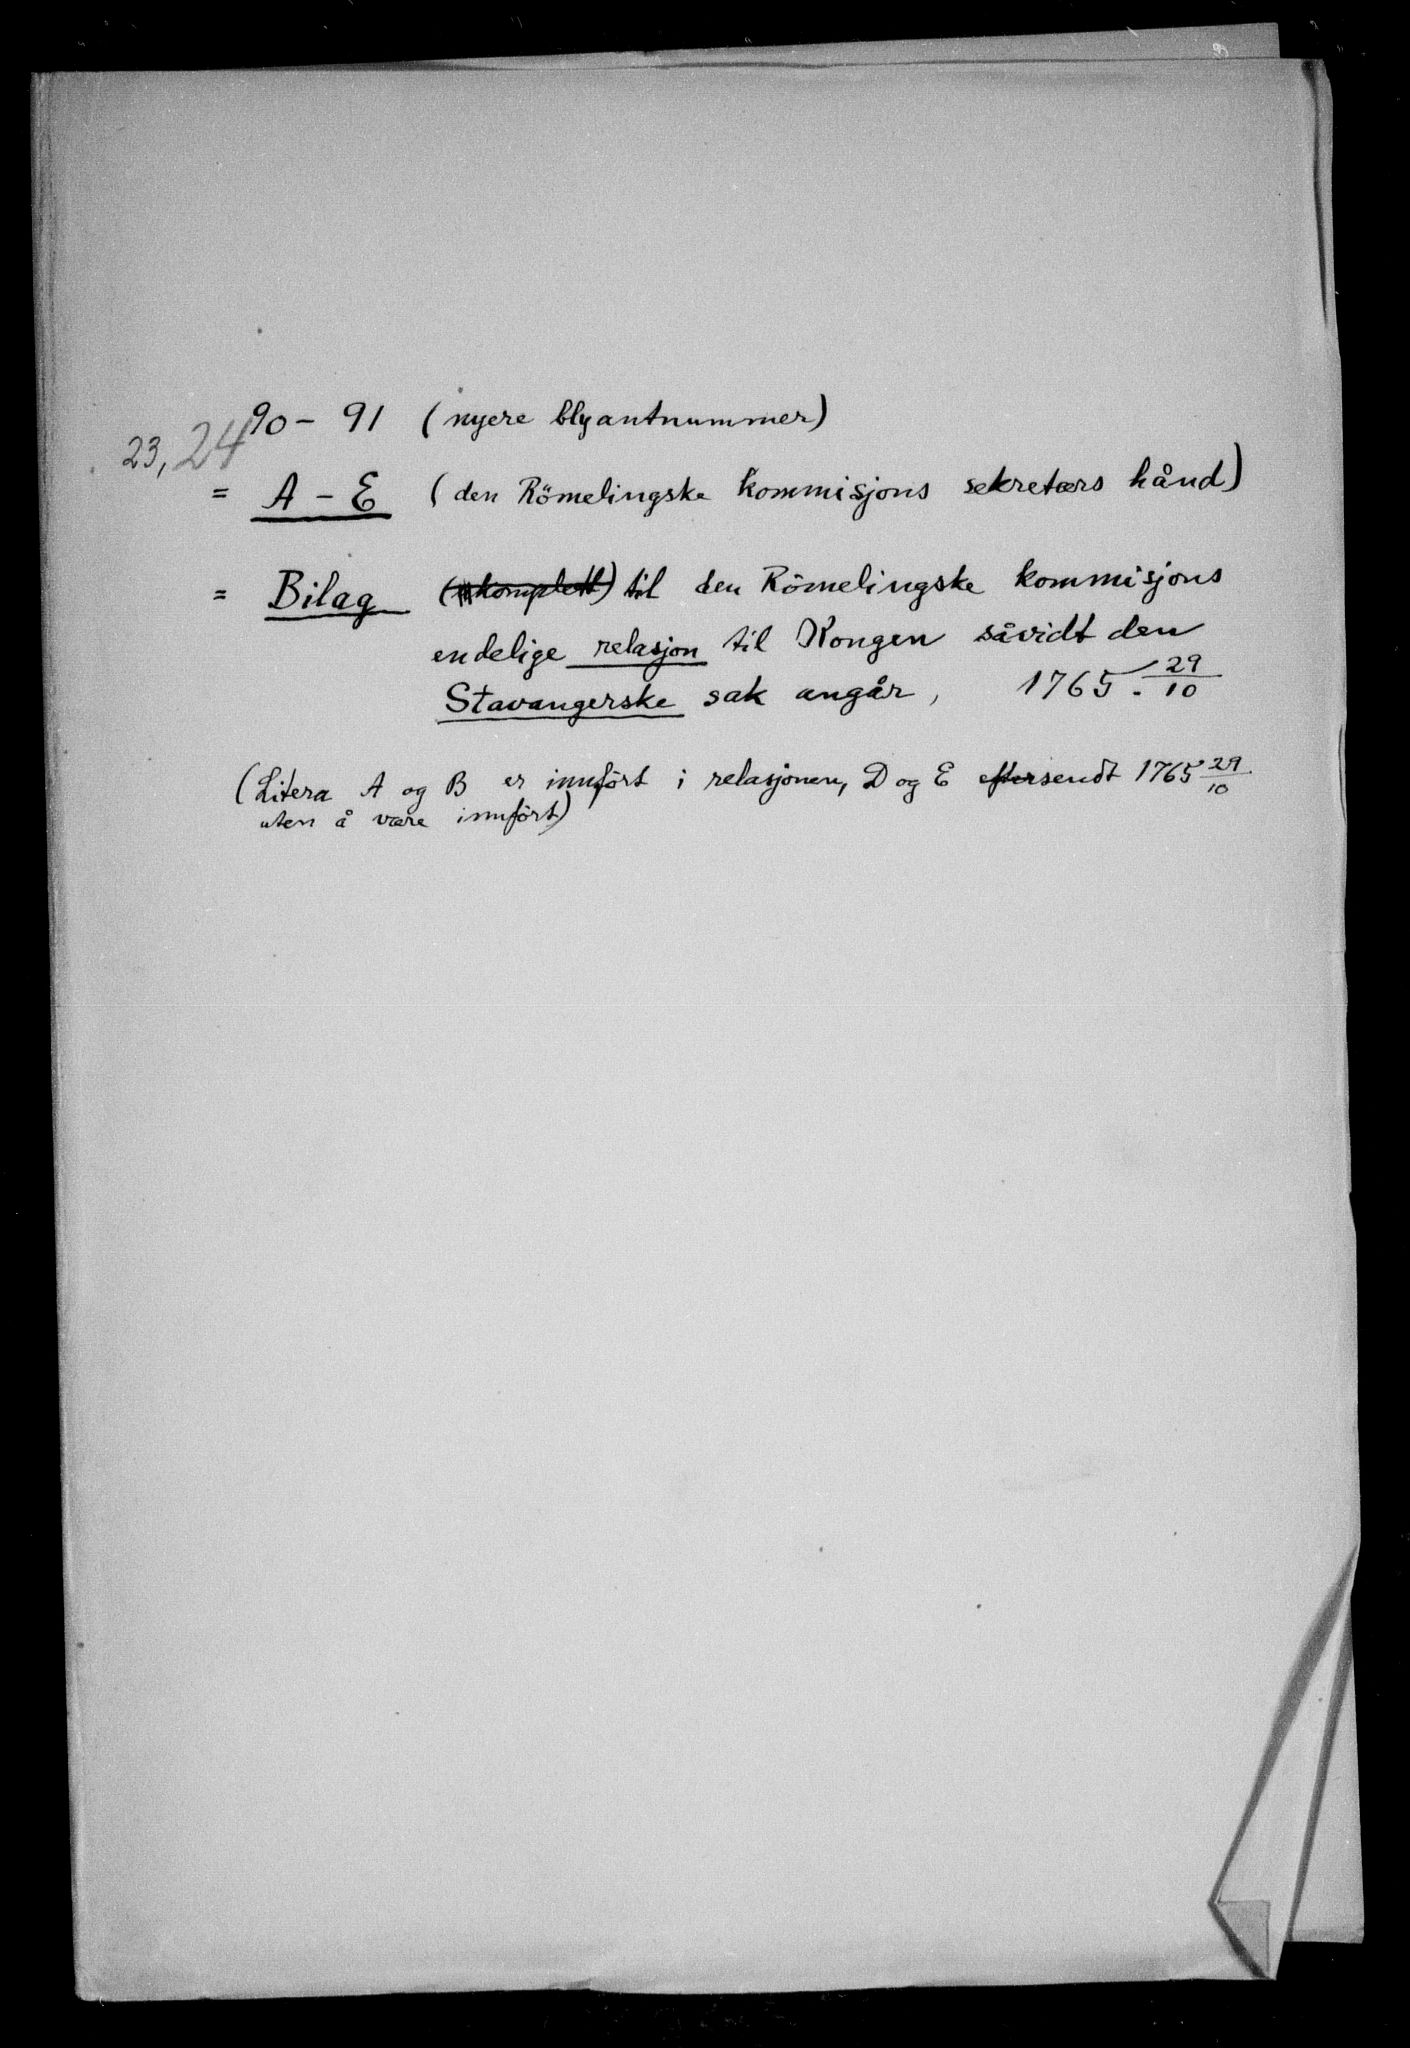 90 – 91 (nyere blyantnummer)
23, 24
= A – E (den Römelingske kommisjons sekretærs hånd)
= Bilag (komplett) til den Römelingske kommisjons
endelige relasjon til Kongen såvidt den
Stavangerske sak angår, 1765. 29/10
(Litera A og B er innført i relasjonen, D og E eftersendt 1765 29/10
uten å være innført)